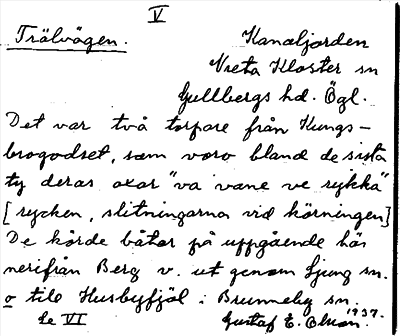 V
Trälvägen.
Kanaljorden
Vreta Kloster sn
Gullbergs hd. Ögl.
Det var två torpare från Kungs-
brogodset, som voro bland de sista
ty deras oxar "va vane ve rykka"
[rycken, slitningarna vid körningen]
De körde båtar på uppgående här
nerifrån Berg v. ut genom Ljung sn.
o till Husbyfjöl i Brunneby sn.
Se VI
1937.
Gustaf E. Olson.